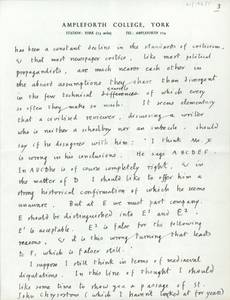 3
AMPLEFORTH COLLEGE, YORK
STATION: YORK (23 miles) TEL: AMPLEFORTH 224
has been a constant decline in the standards of criticism,
& that most newspaper critics, like most political
propagandists, are much nearer each other in
the absurd assumptions they share than divergent
in the few technical details of which every
so often they make so much. It seems elementary
that a civilised reviewer, discussing a writer
who is neither a schoolboy nor an imbecile, should
say if he disagrees with him: 'I think Mr X
is wrong in his conclusions. He says ABCDEF.
In ABC he is of course completely right, & in
the matter of D I should like to offer him a
strong historical confirmation of which he seems
unaware. But at E we must part company.
E should be distinguished into E¹ and E².
E¹ is acceptable. E² is false for the following
reasons, & it is this wrong turning that leads
to F, which is falser still.
I suppose I still think in terms of mediaeval
disputations. In this line of thought I should
like some time to show you a passage of St.
John Chrysostom (which I have not looked at for years)